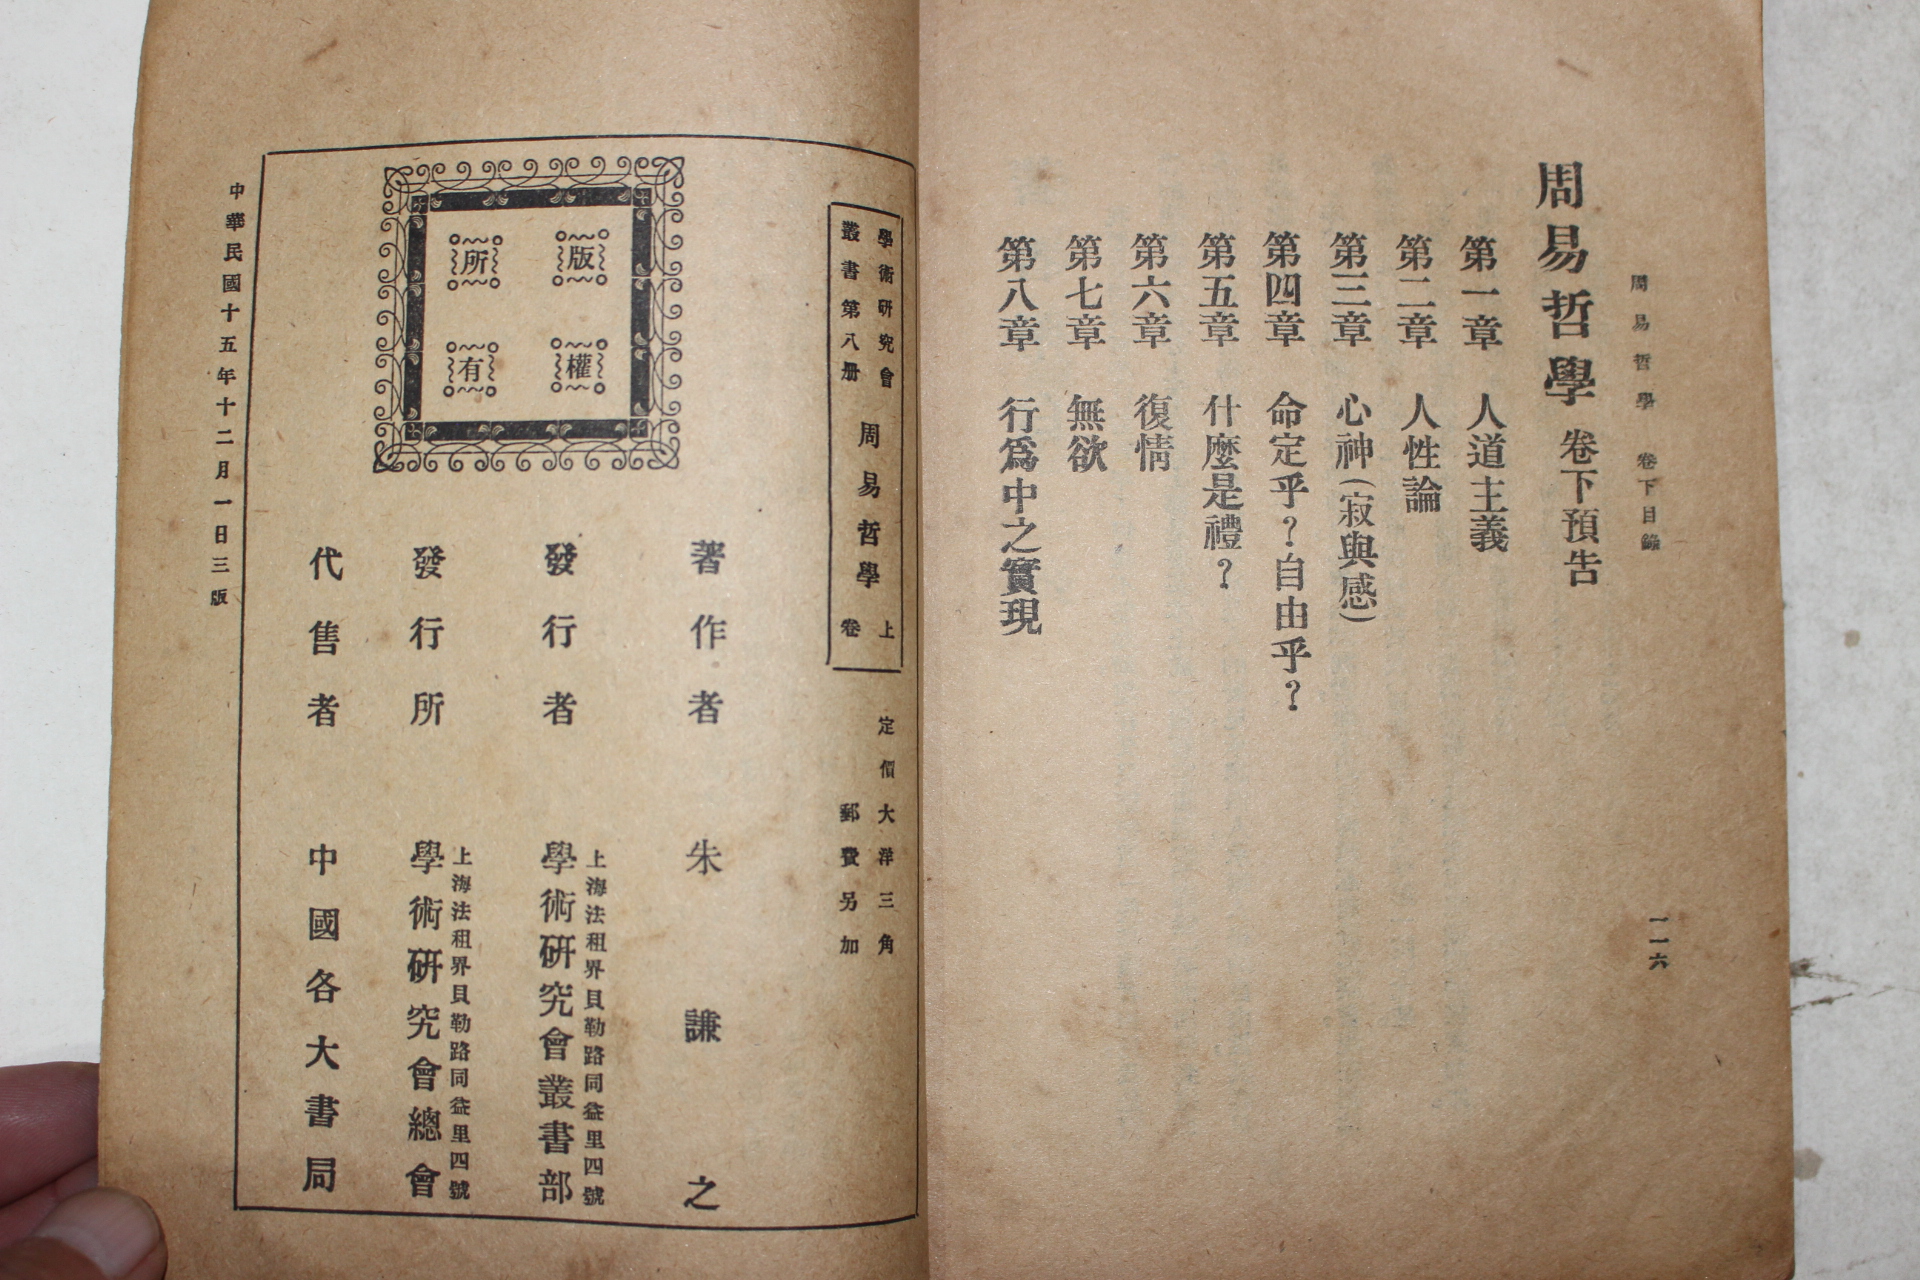 周易哲學 卷下目錄
一一六
周易哲學 卷下預告
第一章 人道主義
第二章 人性論
第三章 心神(寂與感)
第四章 命定乎?自由乎?
第五章 什麼是禮?
第六章 復情
第七章 無欲
第八章 行爲中之實現
學術研究會
叢書第八册
周易哲學
上
卷
定價大洋三角
郵費另加
版權
所有
著作者 朱謙之
上海法租界貝勒路同益里四號
發行者 學術研究會叢書部
上海法租界貝勒路同益里四號
發行所 學術研究會總會
代售者 中國各大書局
中華民國十五年十二月一日三版